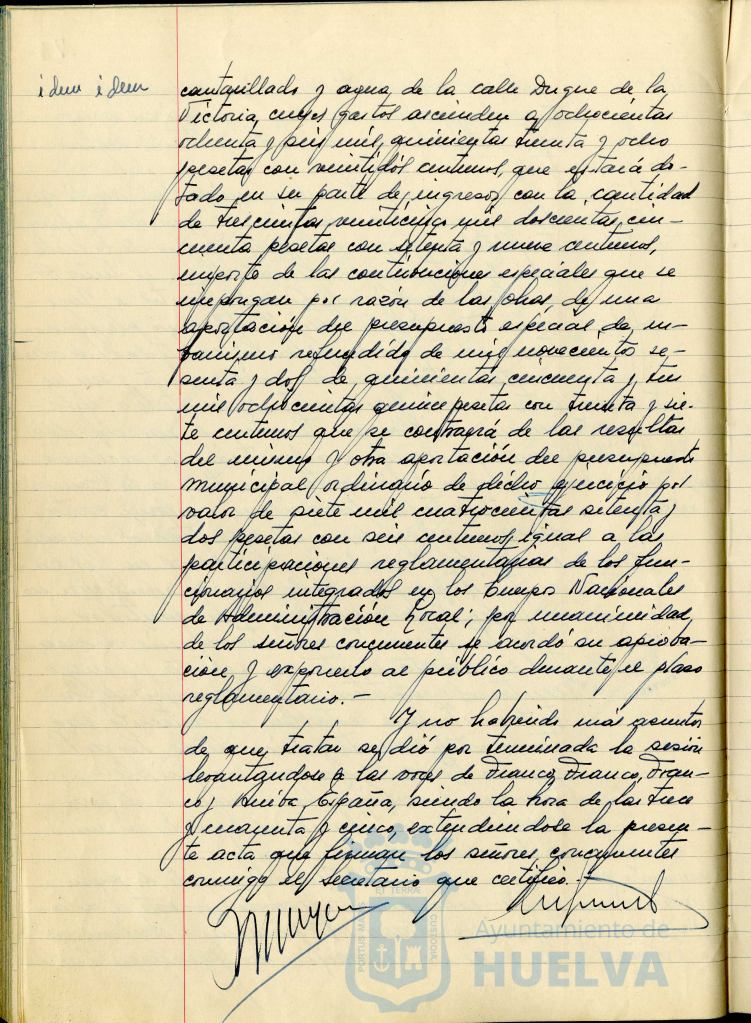 idem idem
cantarillado y agua, de la calle Duque de la
Victoria, cuyos gastos ascienden a ochocientas
ochenta y seis mil, quinientas treinta y ocho
pesetas con veintidós centimos, que estará do-
tado en su parte de ingresos con la cantidad
de trescientas veinticinco mil doscientas cin-
cuenta pesetas con setenta y nueve centimos,
importe de las contribuciones especiales que se
impongan por razón de las obras, de una
aportación del presupuesto especial de ur-
banismo refundido de mil novecientos se-
senta y dos de quinientas cincuenta y tres
mil ochocientas quince pesetas con treinta y sie-
te centimos que se contraerá de las resultas
del mismo y otra aportación del presupuesto
municipal ordinario de dicho ejercicio por
valor de siete mil cuatrocientas setenta y
dos pesetas con seis centimos, igual a las
participaciones reglamentarias de los fun-
cionarios integrados en los Cuerpos Nacionales
de Administración Local; por unanimidad,
de los señores concurrentes se acordó su aproba-
ción y exponerlo al público durante el plazo
reglamentario.-
Y no habiendo más asuntos
de que tratar se dió por terminada la sesión
levantandose a las voces de Franco, Franco, Fran-
co y Arriba España, siendo la hora de las trece
y cuarenta y cinco, extendiendose la presen-
te acta que firman los señores concurrentes
conmigo el secretario que certifico.-
PORTUS MARIS ET TERRAE CUSTODIA
Ayuntamiento de
HUELVA